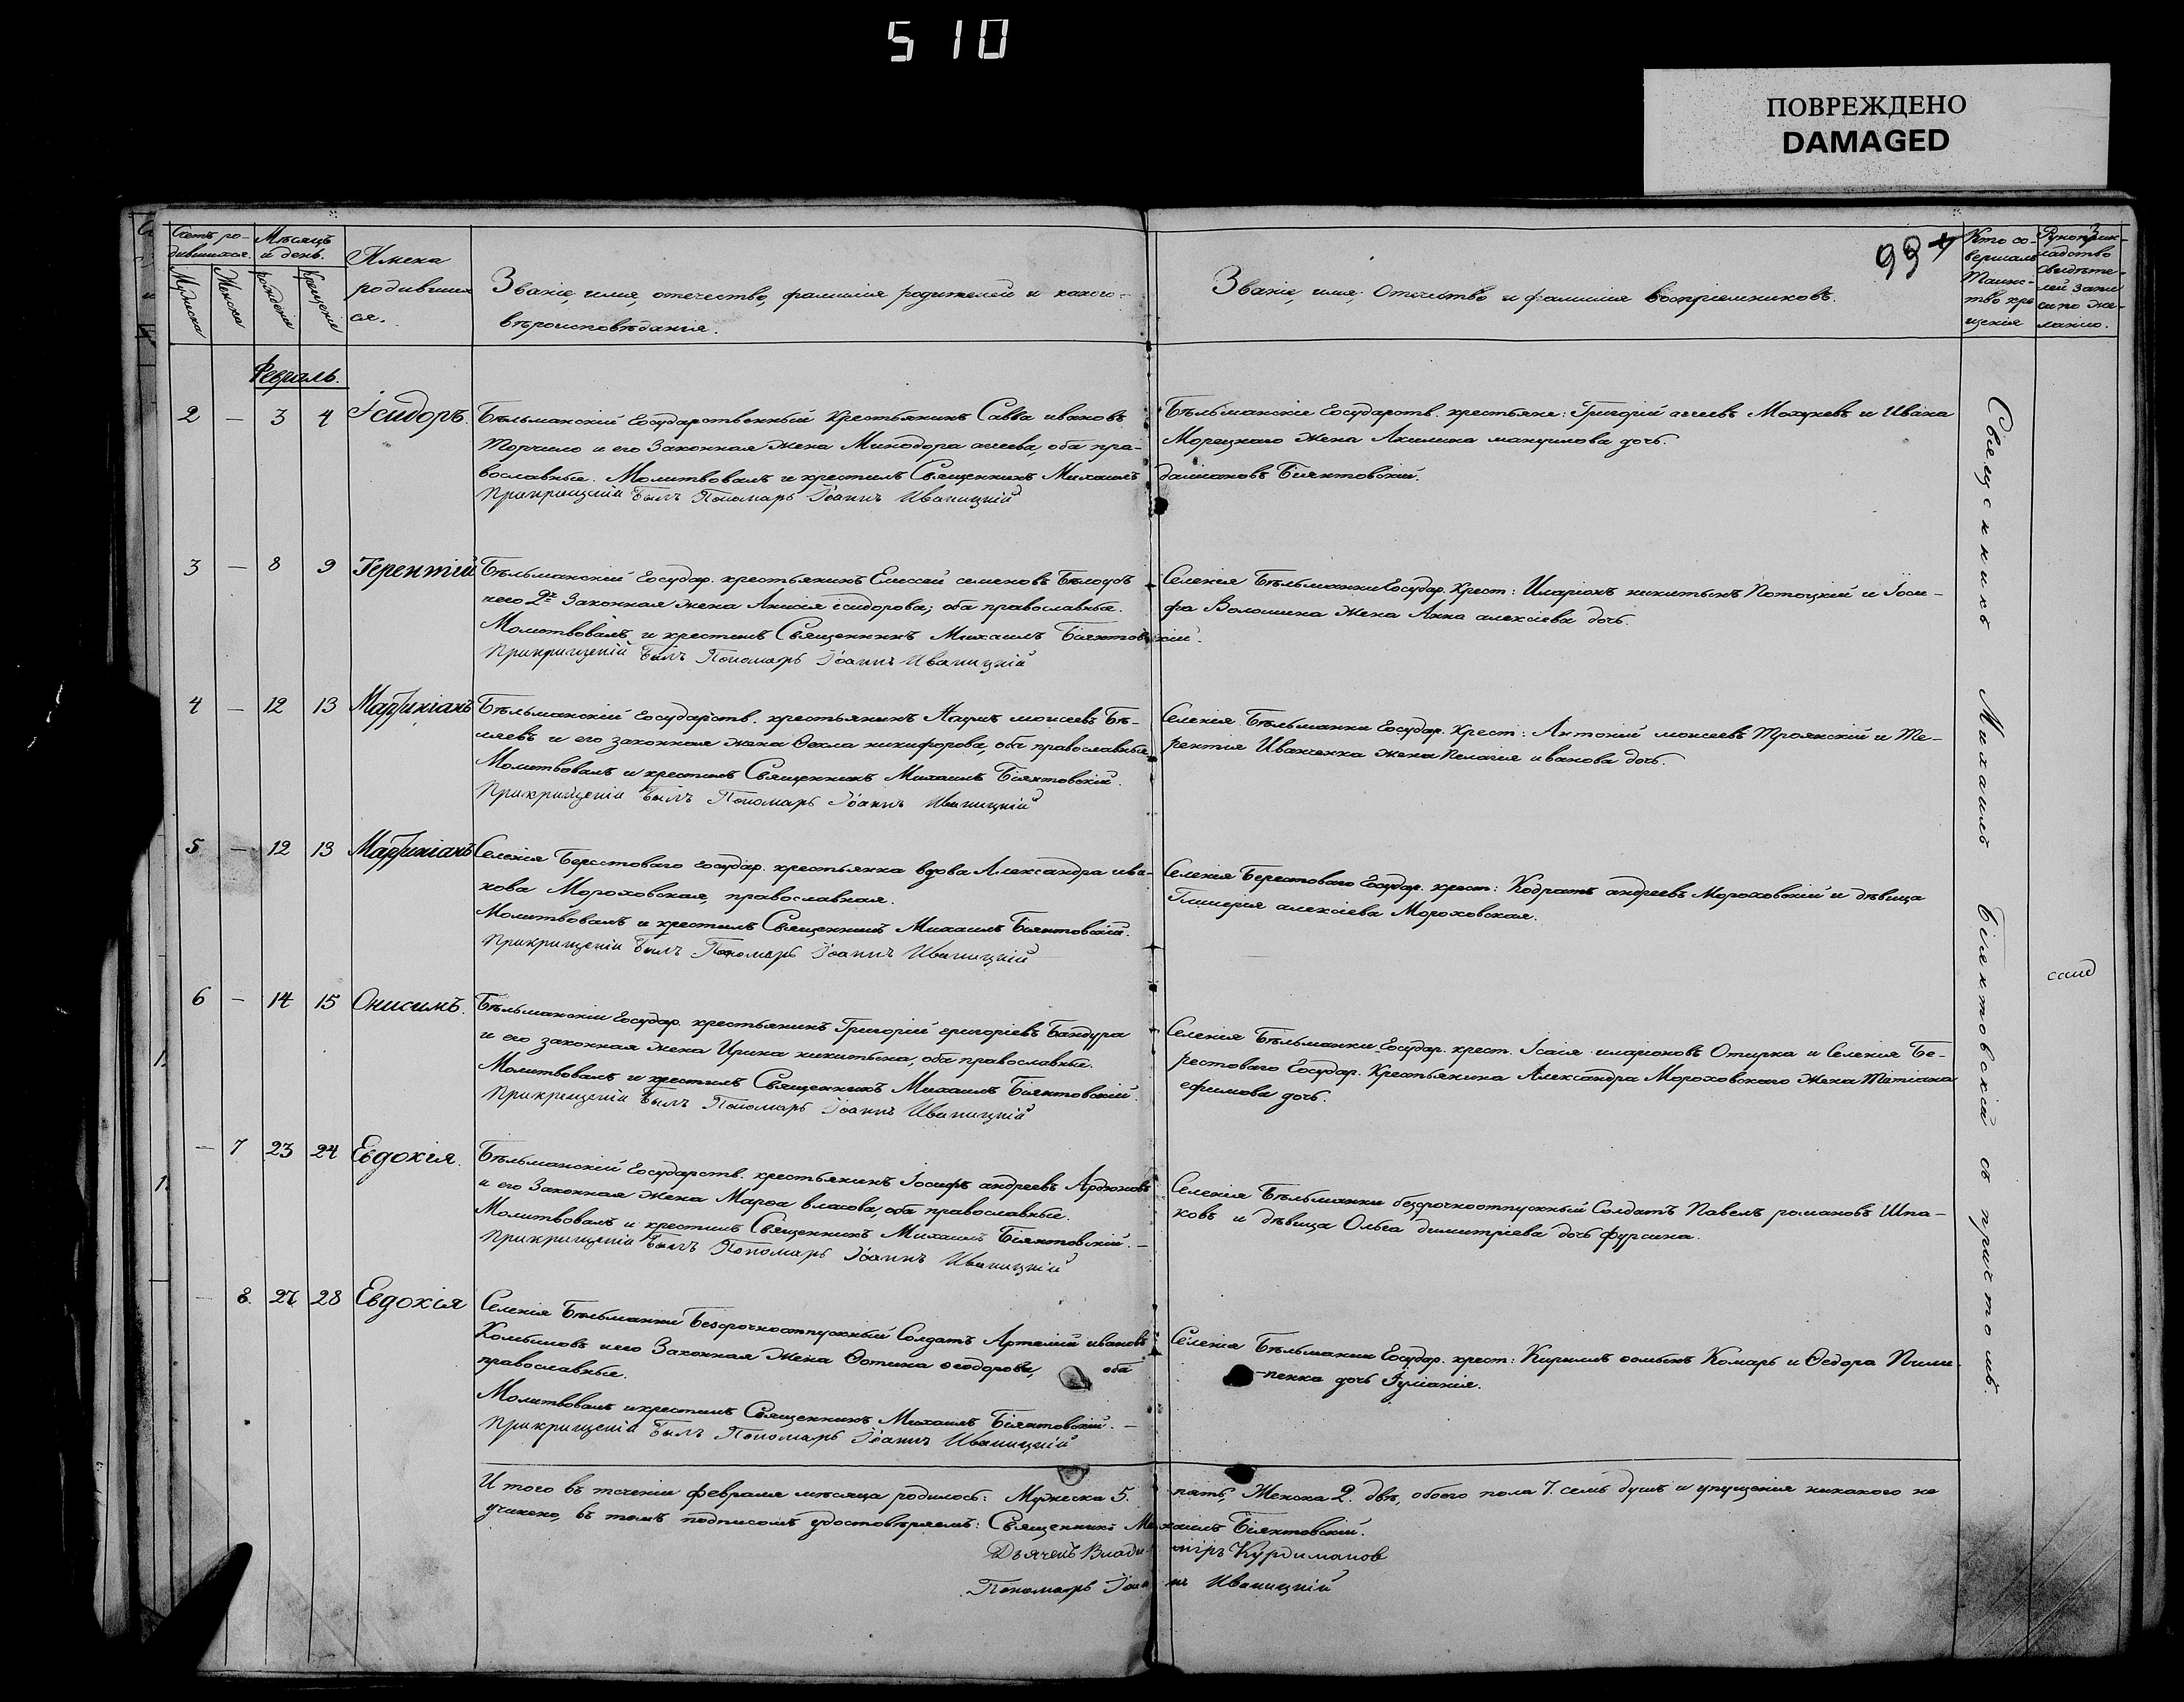 510
ПОВРЕЖДЕНО
DAMAGED
Счетъ ро-
дившихся.
Мѣсяцъ
и день.
Мужеска
Женска
рожденія
крещенія
Имена
родивших
ся.
Званіе, имя, отечество, фамилія родителей и какого-
вѣроисповѣданія.
Званіе, имя, Отечество и фамилія Воспріемниковъ.
99
Кто со-
вершалъ
Таинс-
тво кре
щенія
Рукоприк-
ладство
свидѣте-
лей запи
си по же-
ланію.
Февраль.
2 — 3 4 Ісидоръ. Бѣльманскій Государственный Крестьянинъ Савва ивановъ
Торчило и его Законная жена Минодора агеева, оба пра-
вославные. Молитвовалъ и крестилъ Священникъ Михаилъ
Прикрещеніи Былъ Пономарь Іоаннъ Иваницкій
Бѣльманскіе Государств. крестьяне: Григорій агеевъ и Ивана
Морецкаго жена Акилина мануилова дочь.
даміановъ Біянтовскій.
3 — 8 9 Терентій Бѣльманскій Государ. крестьянинъ Елиссей семеновъ Бѣлоусъ
и его 2я Законная жена Анисія ісидорова; оба православные.
Молитвовалъ и крестилъ Священникъ Михаилъ Біянтовскій.
Прикрищеніи Былъ Пономарь Іоаннъ Иваницкій
Селенія Бѣльманки Государ. Крест: Иларіонъ никитинъ Потоцкій и Іоси-
фа Волошина Жена Анна алексіева дочь.
4 — 12 13 Мартиніанъ Бѣльманскій Государств. крестьянинъ моисеевъ Бѣ-
ляевъ и его законная жена Ѳекла никифорова, оба православные,
Молитвовалъ и крестилъ Священникъ Михаилъ Біянтовскій.
Прикрищеніи Былъ Пономарь Іоаннъ Иваницкій
Селенія Бѣльманки Государ. Крест: Антоній моисеевъ Троянскій и Те-
рентія Иваненка жена Пелагія иванова дочь.
5 — 12 13 Мартиніанъ Селенія Берестоваго Государ. крестьянка вдова Александра ива-
нова Мороховская, православная.
Молитвовалъ и крестилъ Священникъ Михаилъ Біянтовскій.
Прикрищеніи Былъ Пономарь Іоаннъ Иваницкій
Селенія Берестоваго Государ. крест: Кодратъ андреевъ Мороховскій и дѣвица
Гликерія алексіева Мороховская.
6 — 14 15 Онисимъ. Бѣльманскій Государ. крестьянинъ Григорій григоріевъ Бандура
и его законная жена Ирина никитьена, оба православные.
Молитвовалъ и крестилъ Священникъ Михаилъ Біянтовскій.
Прикрещеніи Былъ Пономарь Іоаннъ Иваницкій
Селенія Бѣльманки Государ. крест. Ісаія иларіоновъ Отирка и Селенія Бе-
рестоваго Государ. Крестьянина Александра Мороховскаго жена Татіана
ефимова дочь.
— 7 23 24 Евдокія. Бѣльманскій Государств. крестьянинъ Іосифъ андреевъ
и его Законная жена Марѳа власова, оба православные.
Молитвовалъ и крестилъ Священникъ Михаилъ Біянтовскій. —
Прикрищеніи Былъ Пономарь Іоаннъ Иваницкій
Селенія Бѣльманки безсрочноотпускный Солдатъ Павелъ романовъ Шпа-
ковъ и дѣвица Ольга димитріева дочь Фурсина.
— 8. 27 28 Евдокія Селенія Бѣльманки Безсрочноотпускный Солдатъ Артемій ивановъ
и его Законная Жена Фотина ѳеодорова, оба
православные.
Молитвовалъ и крестилъ Священникъ Михаилъ Біянтовскій. —
Прикрищеніи Былъ Пономарь Іоаннъ Иваницкій
Селенія Бѣльманки Государ. крест: Кириллъ Комарь и Ѳедора Пили-
-пенка дочь Іуліанія.
Священникъ Михаилъ Біянтовскій съ причтомъ.
Итого въ теченіи февраля мѣсяца родилось: Мужеска 5. пять, Женска 2. двѣ, обоего пола 7. семь душъ и упущенія никакого не
учинено, въ томъ подписомъ удостовѣряемъ: Священникъ Михаилъ Біянтовскій.
Дьячекъ Владиміръ Курдиманов
Пономарь Іоаннъ Иваницкій